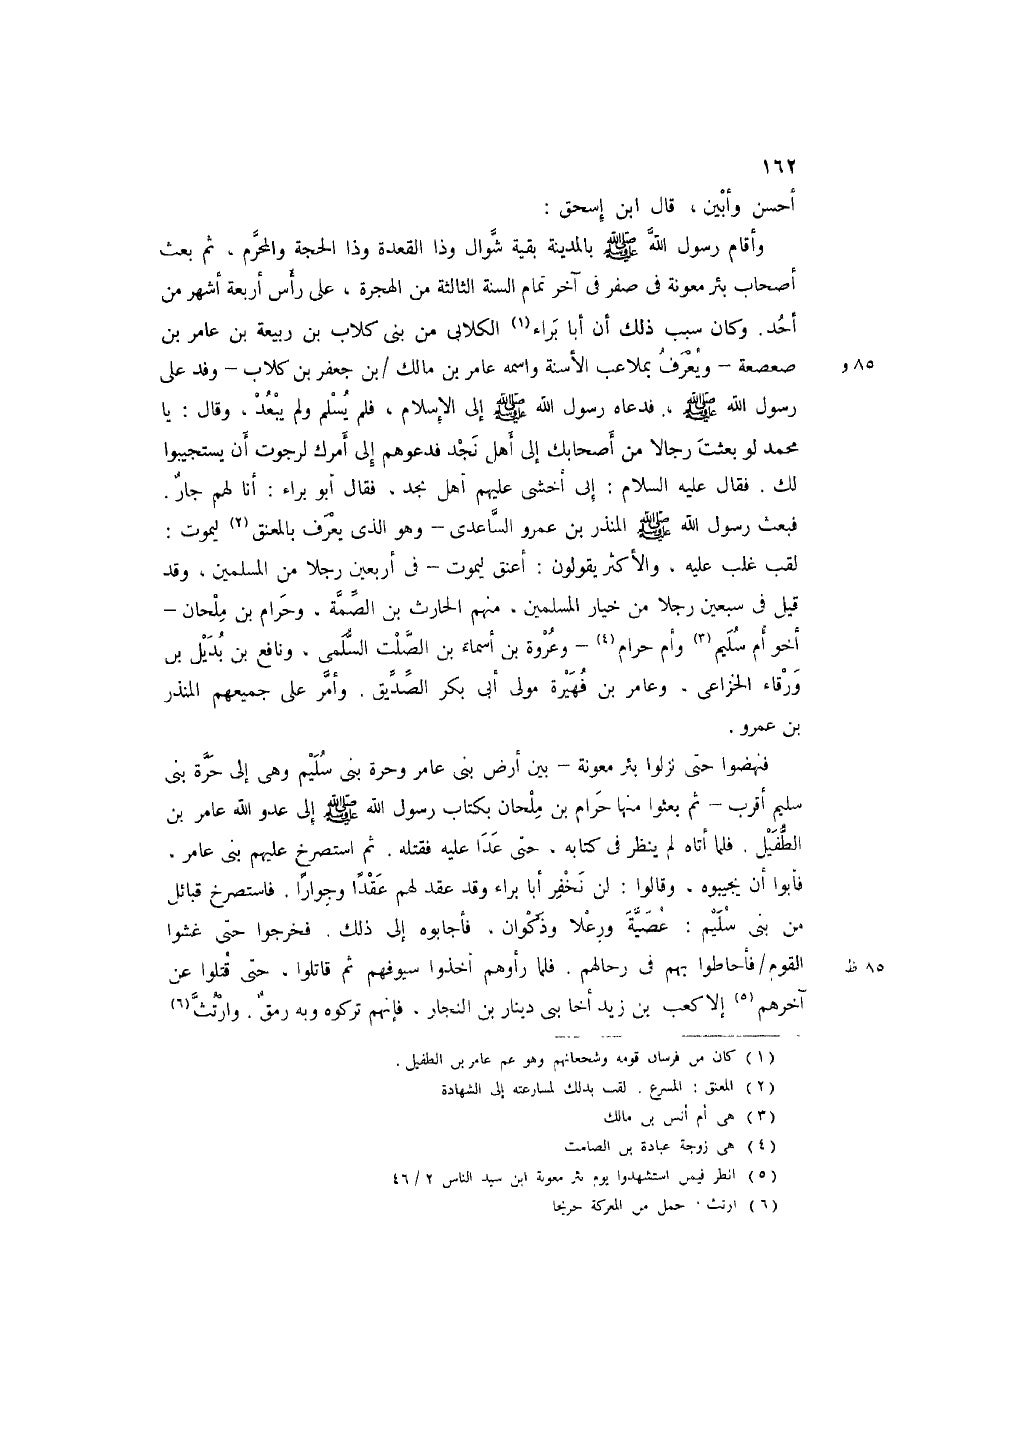 ١٦٢
أحسن وأبْين ، قال ابن إسحق :
وأقام رسول اللهَّ ﷺ بالمدينة بقية شَّوال وذا القعدة وذا الحجة والمحرَّم ، ثم بعث
أصحاب بئر معونة فى صفر فى آخر تمام السنة الثالثة من الهجرة ، على رأْس أربعة أشهر من
أُحُد . وكان سبب ذلك أن أبا بَراء(١) الكلابى من بنى كلاب بن ربيعة بن عامر بن
صعصعة – ويُعْرَفُ بملاعب الأسنة واسمه عامر بن مالك / بن جعفر بن كلاب – وفد على
٨٥ و
رسول الله ﷺ ، فدعاه رسول الله ﷺ إلى الإسلام ، فلم يُسْلم ولم يبْعُدْ ، وقال : يا
محمد لو بعثتَ رجالا من أَصحابك إلى أَهل نَجْد فدعوهم إِلى أَمرك لرجوت أَن يستجيبوا
لك . فقال عليه السلام : إنى أخشى عليهم أهل نجد . فقال أبو براء : أنا لهم جارٌ .
فبعث رسول الله ﷺ المنذر بن عمرو السَّاعدى – وهو الذى يعْرَف بالمعنق(٢) ليموت :
لقب غلب عليه . والأكثر يقولون : أعنق ليموت – فى أربعين رجلا من المسلمين ، وقد
قيل فى سبعين رجلا من خيار المسلمين . منهم الحارث بن الصِّمَّة ، وحَرام بن مِلْحان –
أخو أُم سُلَيم(٣) وأم حرام(٤) – وعُرْوة بن أسماءَ بن الصَّلْت السُّلَمى ، ونافع بن بُدَيْل بن
وَرْقاء الخزاعى ، وعامر بن فُهَيْرة مولى أبى بكر الصِّدِّيق . وأمَّر على جميعهم المنذر
بن عمرو .
فنهضوا حتّى نزلوا بئر معونة – بين أرض بنى عامر وحرة بنى سُلَيْم وهى إلى حَرَّة بنى
سليم أقرب – ثم بعثوا منها حَرام بن مِلْحان بكتاب رسول الله ﷺ إلى عدو الله عامر بن
الطُّفَيْل . فلما أتاه لم ينظر فى كتابه ، حتّى عَدَا عليه فقتله . ثم استصرخ عليهم بنى عامر ،
فأبوا أن يجيبوه ، وقالوا : لن نَخْفِر أبا براء وقد عقد لهم عَقْدًا وجِوارًا . فاستصرخ قبائل
من بنى سُلَيْم : عُصَيَّةَ ورِعْلا وذَكْوان ، فأجابوه إلى ذلك . فخرجوا حتّى غشوا
القوم / فأحاطوا بهم فى رحالهم . فلما رأوهم أخذوا سيوفهم ثم قاتلوا ، حتّى قُتلوا عن
٨٥ ظ
آخرهم(٥) إلا كعب بن زيد أخا بنى دينار بن النجار ، فإنهم تركوه وبه رمقٌ . وارْتُثَّ(٦)
(١) كان من فرسان قومه وشجعانهم وهو عم عامر بن الطفيل .
(٢) المعنق : المسرع . لقب بذلك لمسارعته إلى الشهادة
(٣) هى أم أنس بن مالك
(٤) هى زوجة عبادة بن الصامت
(٥) انظر فيمن استشهدوا يوم بئر معونة ابن سيد الناس ٢ / ٤٦
(٦) ارتث : حمل من المعركة جريحا